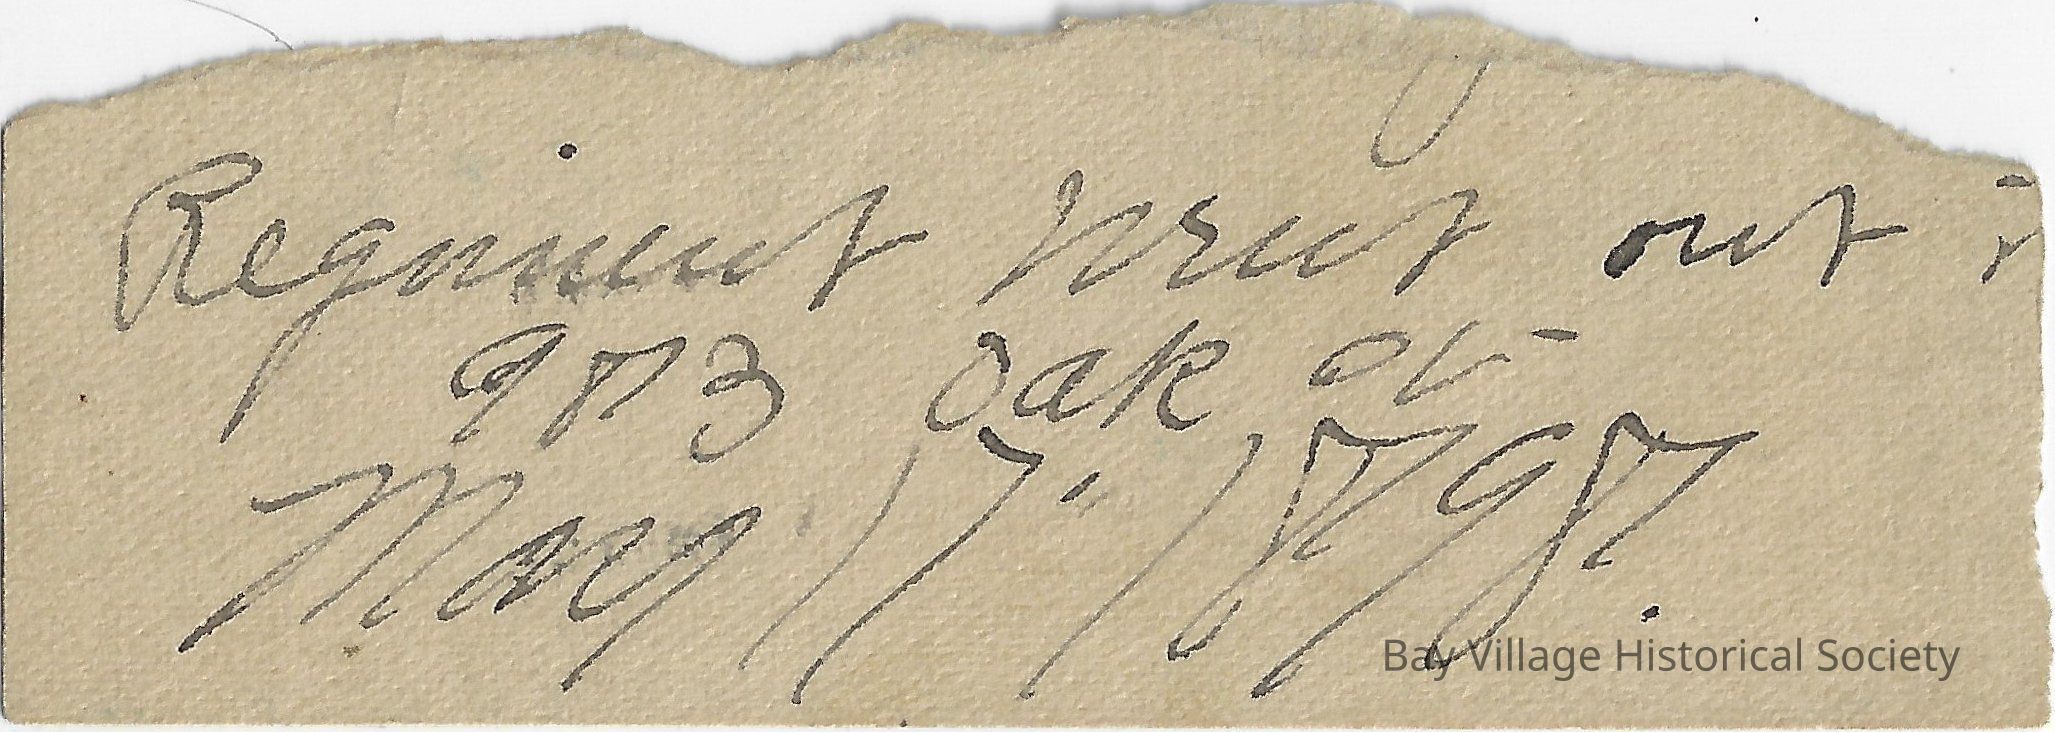 Regiment went out
973 Oak st
May 17" 1898.
Bay Village Historical Society